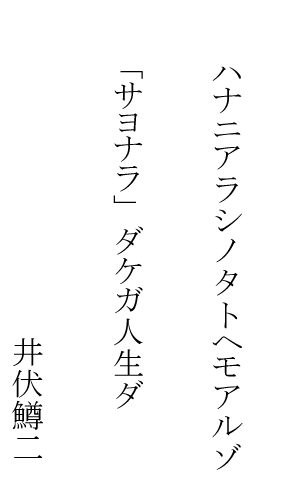 ハナニアラシノタトヘモアルゾ
「サヨナラ」ダケガ人生ダ
井伏鱒二